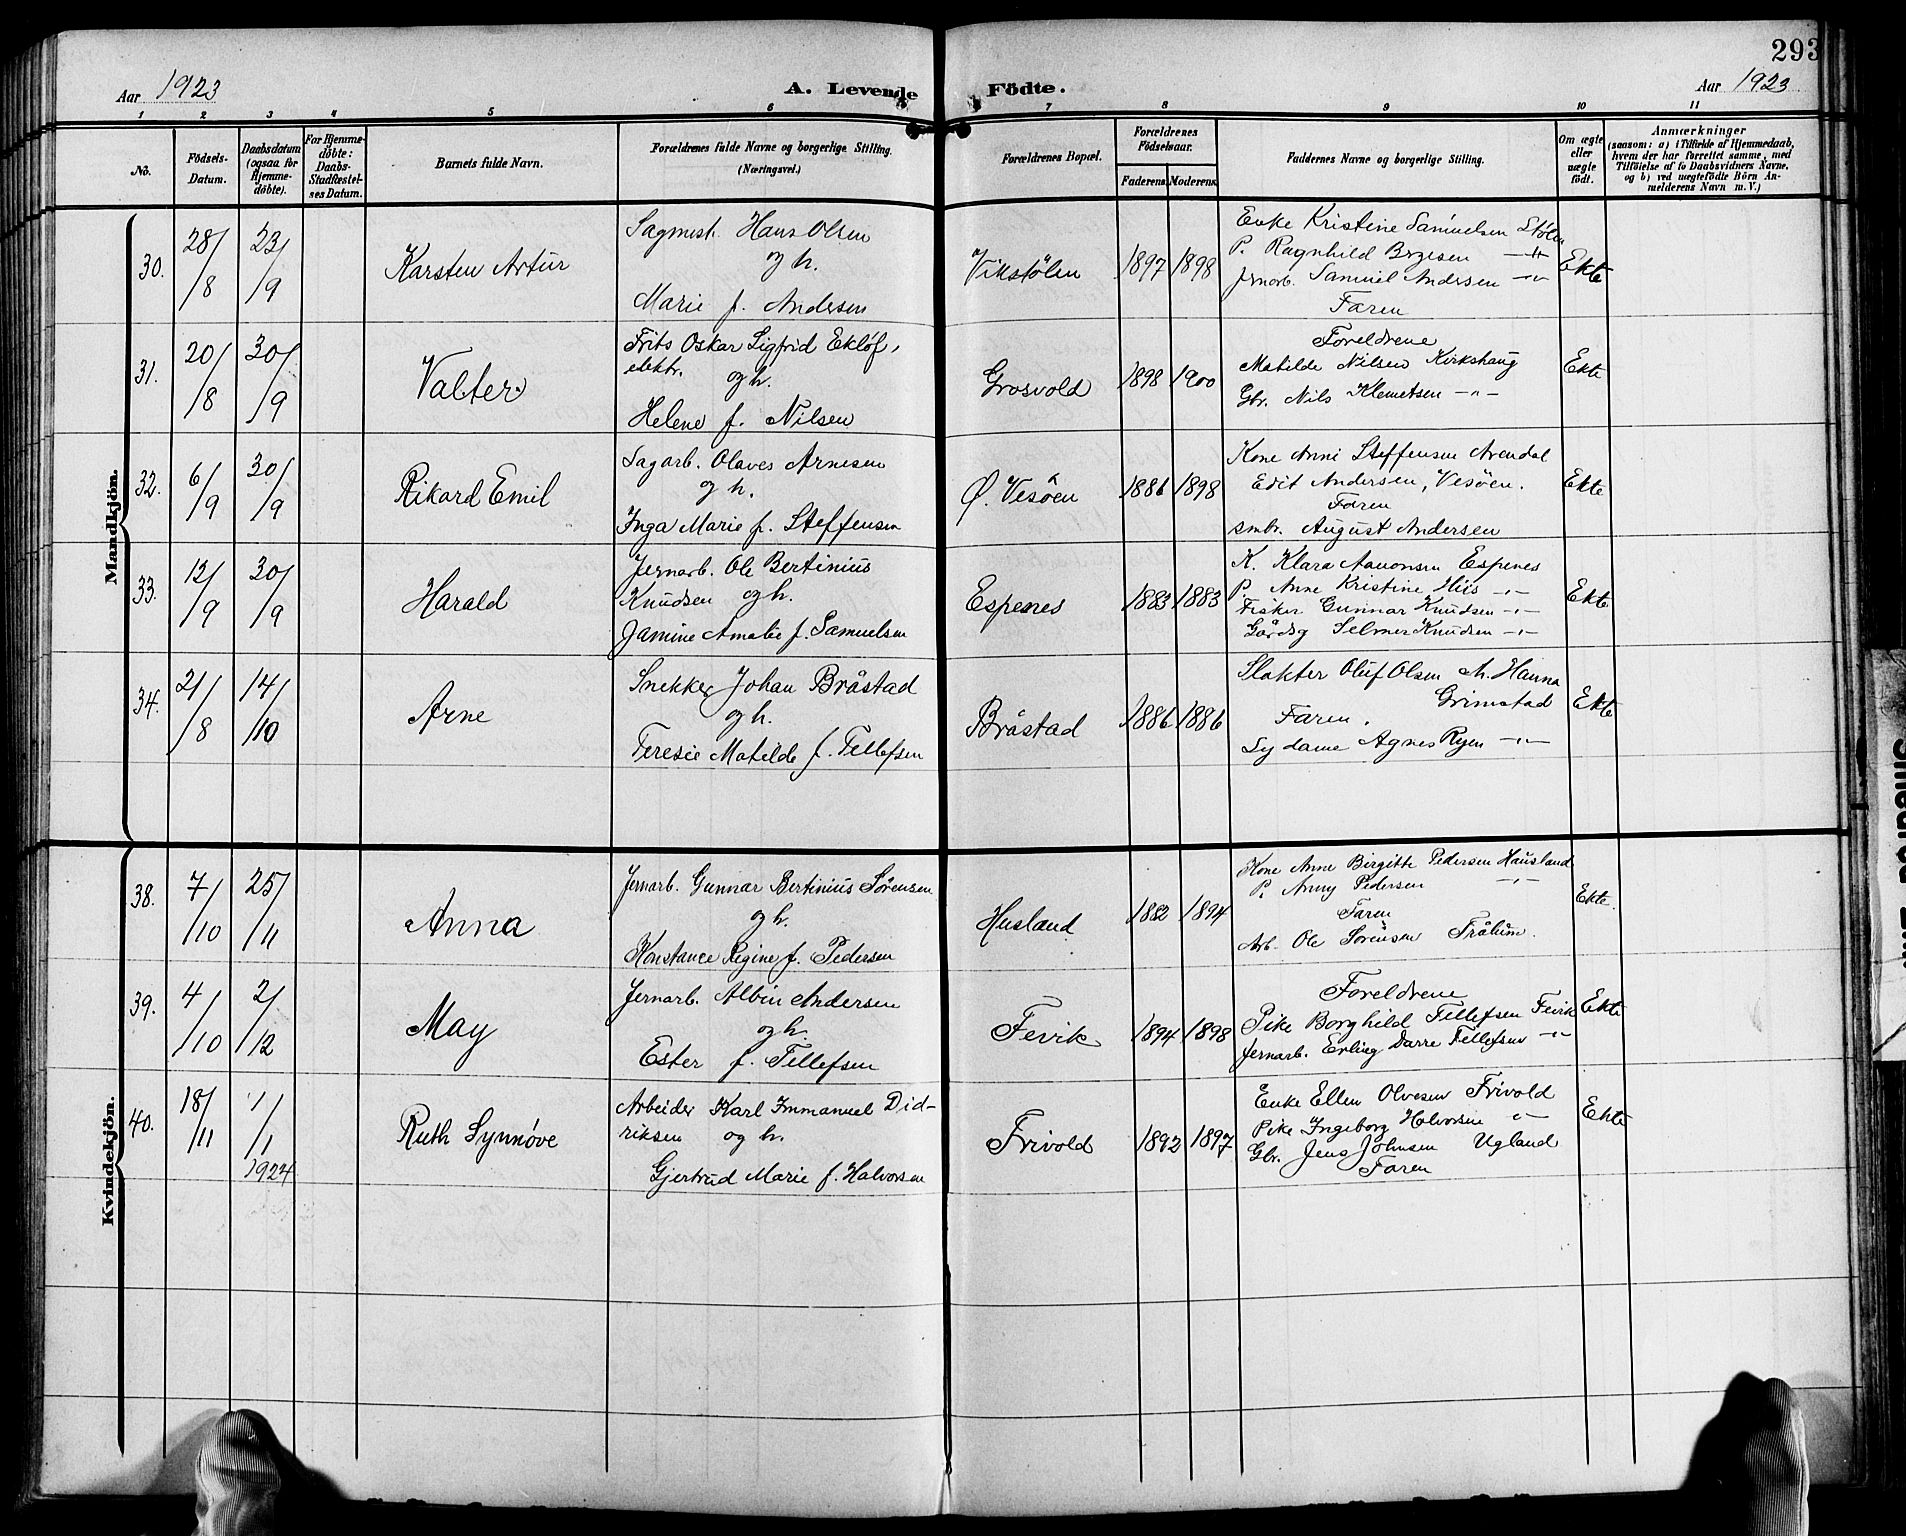 293
Aar 1923
A. Levende Födte.
Aar 1923
1 2 3 4 5 6 7 8 9 10 11
No.
Födsels-Datum.
Daabsdatum (ogsaa for Hjemmedöbte).
For Hjemmedöbte: Daabs-Stadfæstelses Datum.
Barnets fulde Navn.
Forældrenes fulde Navne og borgerlige Stilling. (Næringsvei.)
Forældrenes Bopæl.
Forældrenes Födselsaar.
Faderens. Moderens.
Faddernes Navne og borgerlige Stilling.
Om ægte eller uægte födt.
Anmærkninger
(saasom: a) i Tilfælde af Hjemmedaab,
hvem der har forrettet samme, med
Tilföielse af to Daabsvidners Navne,
og b) ved uægtefödte Börn An-
melderens Navn m. V.)
Mandkjön.
30. 28/8 23/9 Karsten Artur
Sagmest. Hans Olsen
og h.
Marie f. Andersen
Vikstölen 1897 1898
Enke Kristine Samuelsen Stölen
P. Ragnhild -"-
Jernarb. Samuel Andersen -"-
Faren
Ekte
31. 20/8 30/9 Valter
Frits Oskar Sigfrid Eklöf,
elektr. og h.
Helene f. Nilsen
Grosvold 1898 1900
Foreldrene
Matilde Nilsen Kirkshaug
Gbr. Nils Klemetsen -"-
Ekte
32. 6/9 30/9 Rikard Emil
Sagarb. Olaves Arnesen
og h.
Inga Marie f. Steffensen
Ø. Vesöen 1886 1898
Kone Anni Steffensen Arendal
Edit Andersen, Vesöen.
Faren
smbr. August Andersen
Ekte
33. 12/9 30/9 Harald
Jernarb. Ole Bertinius
Knudsen og h.
Jamine Amalie f. Samuelsen
Espenes 1883 1883
K. Klara Aanonsen Espenes
P. Anne Kristine Hiis -"-
Fisker Gunnar Knudsen -"-
Gårdsg Selmer Knudsen -"-
Ekte
34. 21/8 14/10 Arne
Snekker Johan Bråstad
og h.
Teresie Matilde f. Tellefsen
Bråstad 1886 1886
Slakter Oluf Olsen M. Hanna
Grimstad
Faren.
Sydame Agnes Ryen -"-
Ekte
Kvindekjön.
38. 7/10 25/11 Anna
Jernarb. Gunnar Bertinius Sörensen
og h.
Konstance Regine f. Pedersen
Husland 1882 1894
Kone Anne Birgitte Pedersen Hausland
P. Anny Pedersen -"-
Faren
Arb. Ole Sörensen Trålum.
Ekte.
39. 4/10 2/12 May
Jernarb. Albin Andersen
og h.
Ester f. Tellefsen
Fevik 1894 1898
Foreldrene
Pike Borghild Tellefsen Fevik
Jernarb. Erling Darre Tellefsen -"-
Ekte
40. 18/11 1/1 1924 Ruth Synnöve
Arbeider Karl Immanuel Did-
riksen og h.
Gjertrud Marie f. Halvorsen
Frivold 1892 1897
Enke Ellen Olvesen Frivold
Pike Ingeborg Halvorsen -"-
Gbr. Jens Johnsen Ugland
Faren
Ekte